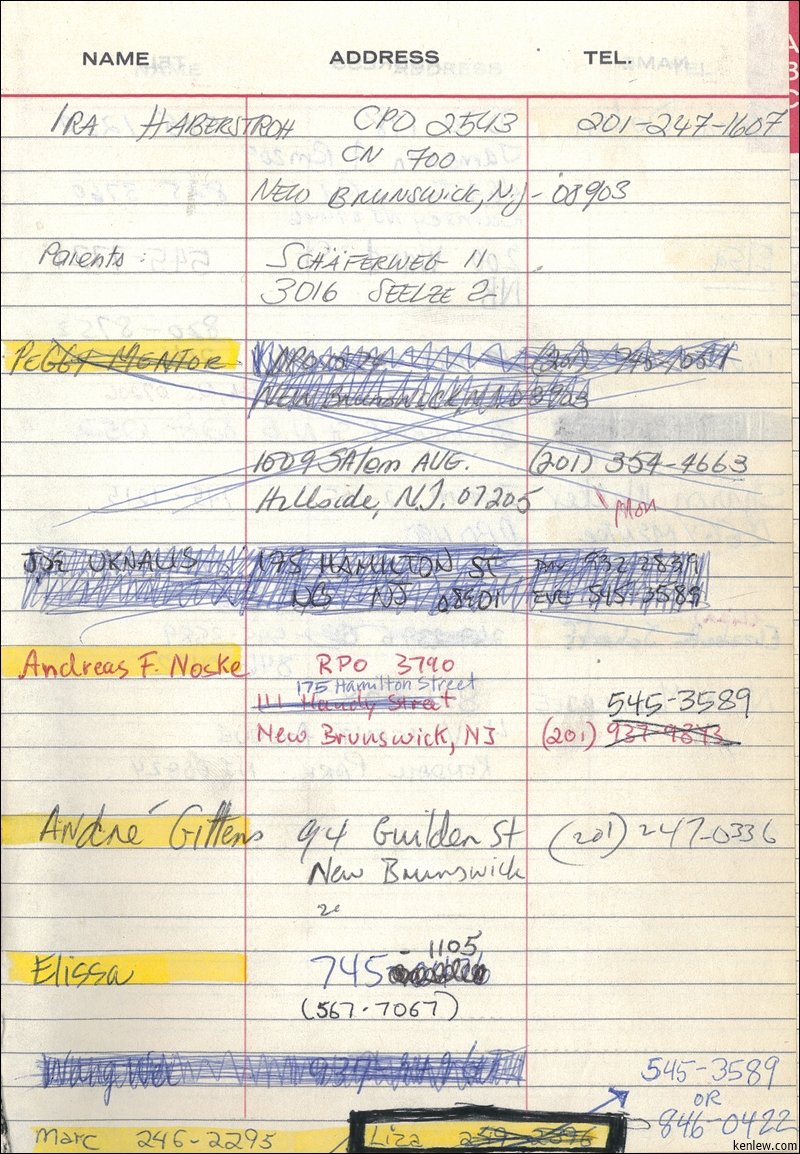 NAME ADDRESS TEL.
A
B
C
IRA HABERSTROH CPO 2543 201-247-1607
CN 700
NEW BRUNSWICK, N.J- 08903
Parents: SCHÄFERWEG 11
3016 SEELZE 2
PEGGY MENTOR (201)
NEW BRUNSWICK, N.J. 08903
1609 SALEM AUG. (201) 354-4663
Hillside, N.J. 07205
MOM
JOE UKNALIS 175 HAMILTON ST DAY 932 2839
NB NJ 08901 EVE 545-3589
Andreas F. Noske RPO 3790
175 Hamilton Street
111 Handy Street 545-3589
New Brunswick, NJ (201) 937-9373
André Gittens 94 Guilden St (201) 247-0336
New Brunswick
Elissa 745-1105
(567-7067)
Wung Wei
545-3589
OR
846-0422
Marc 246-2295 Liza
kenlew.com